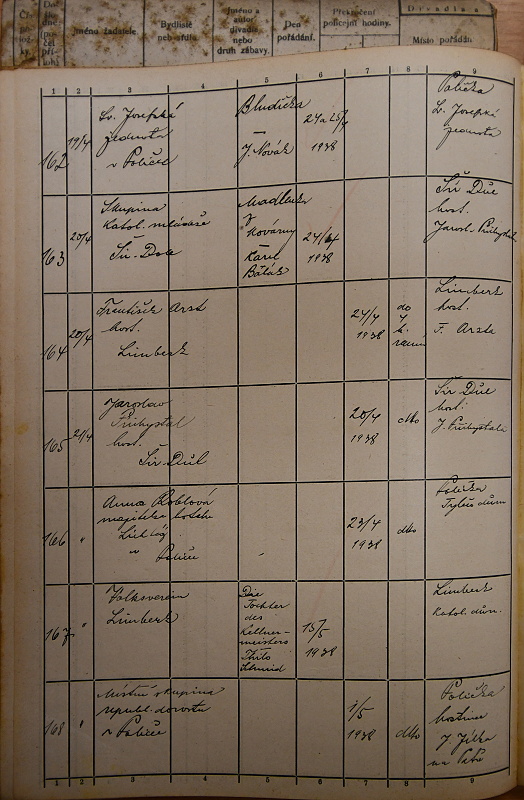 Jméno žadatele.
Bydliště
Jméno a
autor
divadla
nebo
druh zábavy.
Den
pořádání.
Překročení
policejní hodiny.
Divadla a
Místo pořádán
1 2 3 4 5 6 7 8 9
162
19/4
Sv. Josefská
jednota
v Poličce
Bludička
—
J. Novák
24 a 25/4
1938
Polička
Sv. Josefská
jednota
163
20/4
Skupina
katol. mládeže
Šir. Dole
Madlenka
z
Kovárny
Karel
24/4
1938
Šir Důl
host.
Jarosl. Přihystal
164
20/4
František Arzt
host.
Limberk
24/4
1938
do
4
h.
ranní
Limberk
host.
F. Arzta
165
21/4
Jaroslav
Přihystal
host.
Šir. Důl
20/4
1938
dtto
Šir Důl
host.
J. Přihystala
166
"
Anna
majitelka hotelu
v Poličce
23/4
1938
dtto
Polička
Tylův dům
167
"
Volksverein
Limberk
Die
Tochter
des
Kellner-
meisters
Thilo
Schmid
15/5
1938
Limberk
Katol. dům.
168
"
Místní skupina
republ. dorostu
v Poličce
1/5
1938
dtto
Polička
hostinec
J. Jílka
1 2 3 4 5 6 7 8 9